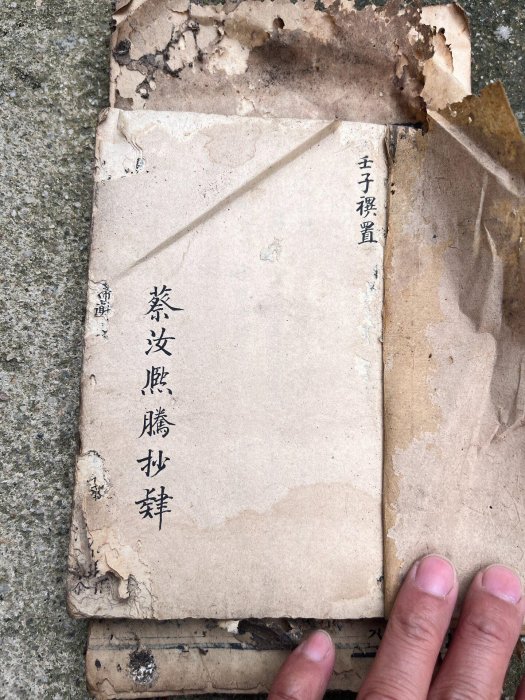 壬子禩置
蔡汝熈騰抄肄